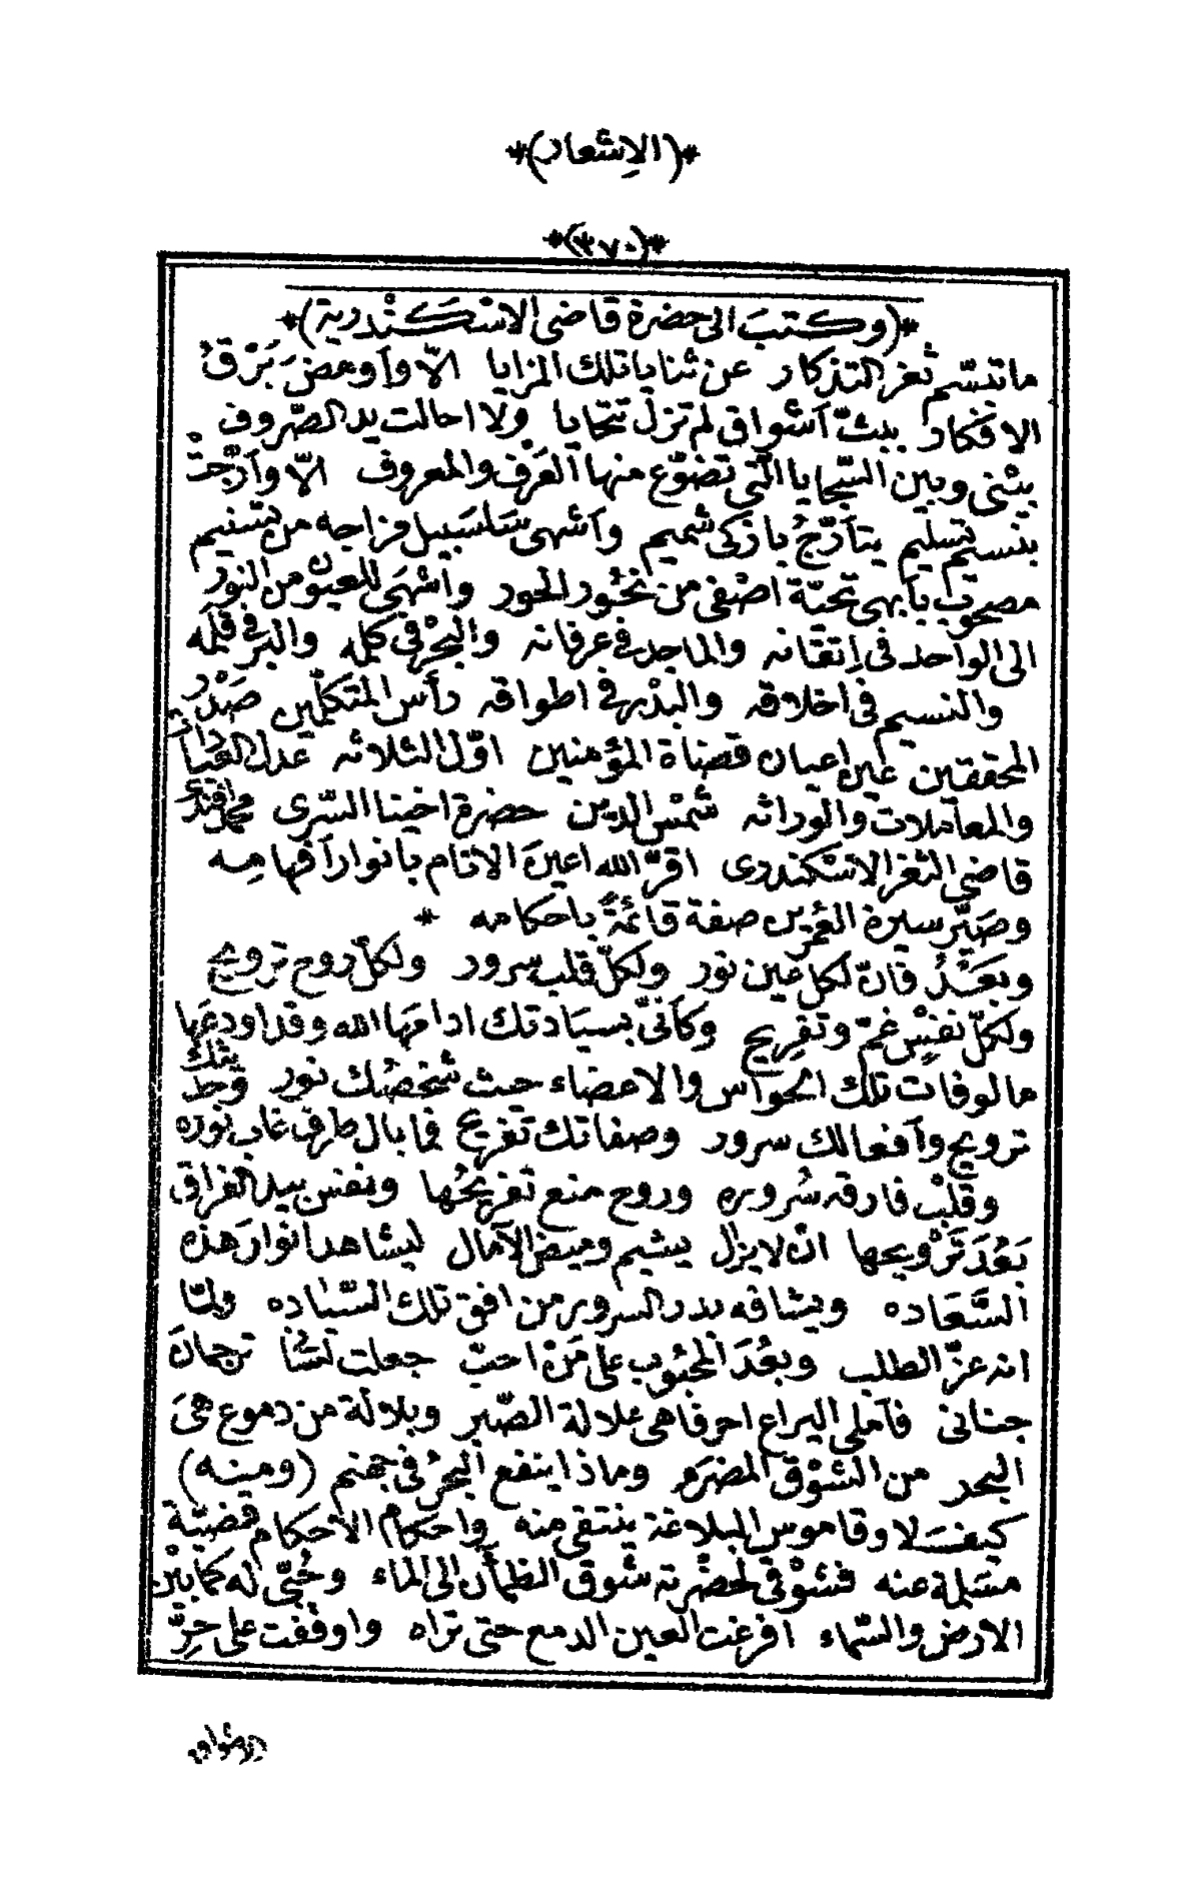 *(الإشعار)*
*(٣٧٠)*
*(وكتبَ الى حضرة قاضى الاسْكَنْدرية)*
ما تبسّم ثغر التذكار عن ثنايا تلك المزايا الّا وأومضَ بَرْقُ
الافكار ببثّ أشواق لم تزل تحايا ولا احالت يد الصّروف
بيْنى وبين السّجايا الّتى تضوّع منها العَرْف والمعروف الّا وأرّجتْ
بنسيم تسليم يتأرّجُ بازكى شميم وأشهى سَلسَبيل مزاجه من تسنيم
مصحوب بأبهى تحيّة اصْفى من نحُور الحور وأشهَى للعيون من النور
الى الواحد فى إتقانه والماجد فى عرفانه والبحْر فى كلمه والبرّ فى قلمه
والنسيم فى اخلاقه والبدْر فى اطواقه رأس المتكلّمين صَدْر
المحققين عين اعيان قضاة المؤمنين اوّل الثلاثه عدل العبادات
والمعاملات والوراثه شمْس الدين حضرة اخينا السّرى محمد افندى
قاضى الثغر الاسْكندرى اقرّ الله اعينَ الانام بانوار أفهامِه
وصَيّر سيرة العُمرين صفة قائمةً باحكامه *
وبَعَدْ فانّ لكل عين نور ولكلّ قلب سرور ولكلّ روح ترويح
ولكلّ نفسٍ غمّ وتفريج وكأنىّ بسيَادتك ادامَها الله وقد اودعَها
مالوفات تلك الحوَاس والاعضاء حيث شخصُك نور وحديثك
ترويح وأفعالك سرور وصفاتك تفريج فما بال طرف غاب نوره
وقلبْ فارقه سُروره وروح منع تفريحُها ونفس بيد الفراق
بَعُدَ تَرْويحها انّه لا يزال يشيم وميض الآمال ليشاهد انوارَ هذه
السَّعَاده ويشافه بدر السرور من افق تلك السّياده ولمّا
انه عزّ الطلب وبعُدَ المحبُوب على مَنْ احبّ جعلت لسَانى ترجمانَ
جنانى فأملى اليراع احرفا هى علالة الصّبر وبلالة من دموع هىَ
البحر من الشوْق المضرَم وماذا ينفع البحْرُ فى جهنم (ومينه)
كيفسَ لا وقاموس البلاغة ينتقى منه واحكام الأحكام قضيّة
مسَلمة عنه فشوْقى لحضْرته شوق الظمأن الى الماء وحُبّى له كما بيْن
الارض والسّماء افرغت العين الدمع حتى تراه واوقفت على حرِّ
الاشواق